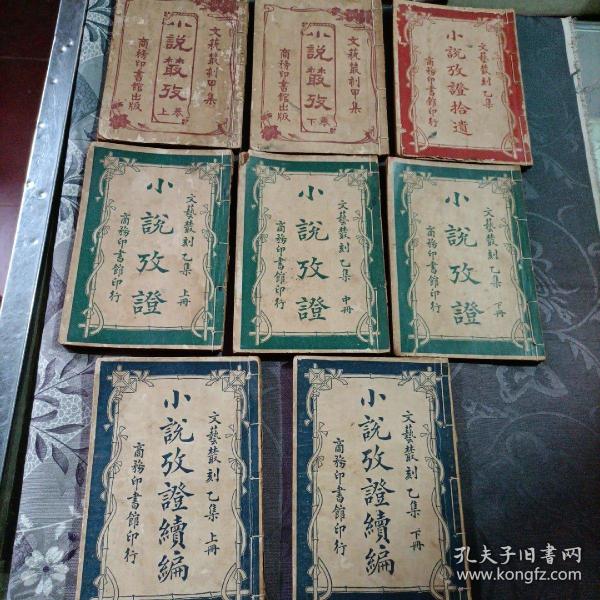 文藝叢刻甲集
小說叢攷
卷上
商務印書館出版
文藝叢刻甲集
小說叢攷
卷下
商務印書館出版
文藝叢刻乙集
小說攷證拾遺
商務印書館印行
文藝叢刻乙集 上冊
小說攷證
商務印書館印行
文藝叢刻乙集 中冊
小說攷證
商務印書館印行
文藝叢刻乙集 下冊
小說攷證
商務印書館印行
文藝叢刻乙集 上冊
小說攷證續編
商務印書館印行
文藝叢刻乙集 下冊
小說攷證續編
商務印書館印行
孔夫子旧书网
www.kongfz.com